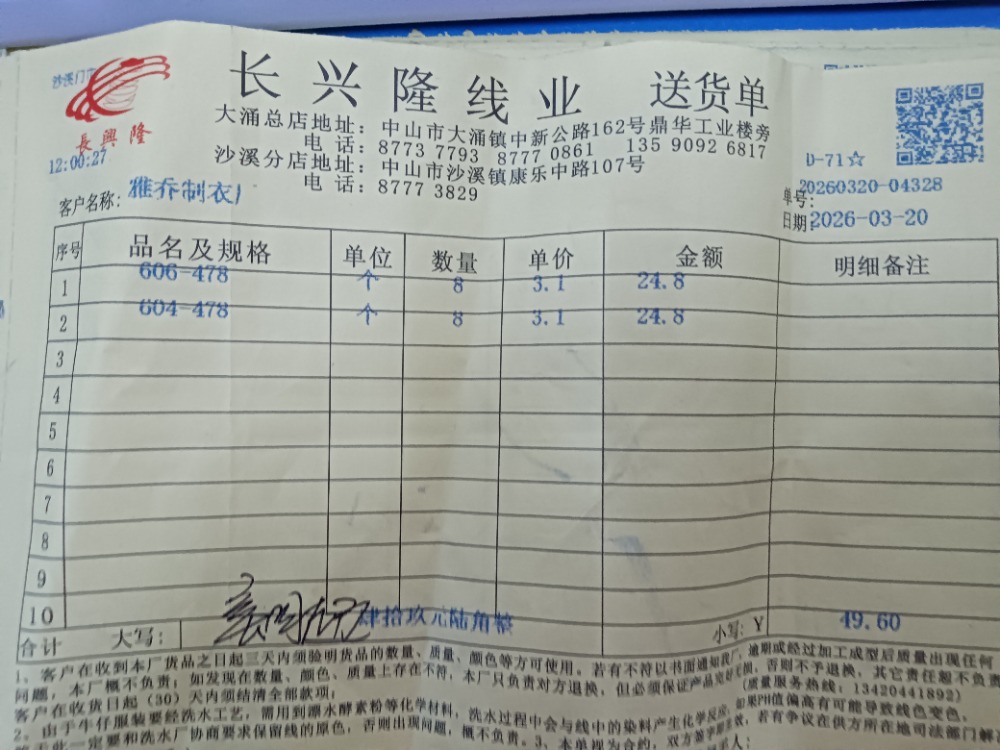 沙溪门市
長興隆
12:00:27
长兴隆线业 送货单
大涌总店地址：中山市大涌镇中新公路162号鼎华工业楼旁
电话：8773 7793 8777 0861 135 9092 6817
沙溪分店地址：中山市沙溪镇康乐中路107号
电话：8777 3829
D-71☆
客户名称：雅乔制衣厂
单号：20260320-04328
日期：2026-03-20
序号 品名及规格 单位 数量 单价 金额 明细备注
1 606-478 个 8 3.1 24.8
2 604-478 个 8 3.1 24.8
3
4
5
6
7
8
9
10
合计 大写： 肆拾玖元陆角整 小写：￥ 49.60
1、客户在收到本厂货品之日起三天内须验明货品的数量、质量、颜色等方可使用。若有不符以书面通知我厂，逾期或经过加工成型后质量出现任何
问题，本厂概不负责；如发现在数量、颜色、质量上存在不符，本厂只负责对方退换，但必须保证产品完好无损，否则不予退换，其它责任恕不负责
客户在收货日起（30）天内须结清全部款项； （质量服务热线：13420441892）
2、由于牛仔服装要经洗水工艺，需用到漂水酵素粉等化学材料，洗水过程中会与线中的染料产生化学反应，如果PH值偏高有可能导致线色变色，
一定要和洗水厂协商要求保留线的原色，否则出现问题，概不负责。3、本单视为合约，双方签字 效，若有争议在供方所在地司法部门解